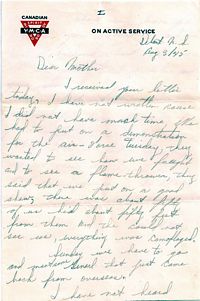 I
CANADIAN
YMCA
ON ACTIVE SERVICE
Debert N.S.
Aug 3/45
Dear Mother
I received your letter
today, I have not wrote cause
I did not have much time. We
had to put on a demonstration
for the air-force Tuesday, they
wanted to see how we
and to see a flame-thrower, they
said that we put on a good
show, there was about fifty
of us hid about fifty feet
from them and they could not
see us, everything was camoflaged.
Sunday we have to go
and that just came
back from overseas.
I have not heard